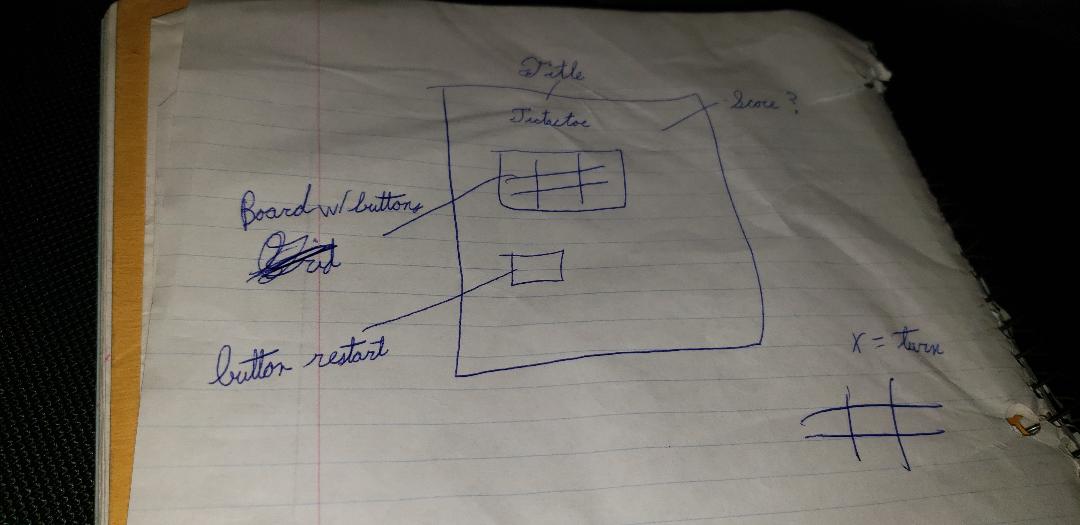 Title
Score?
Tictactoe
Board w/ buttons
Grid
button restart
X = turn